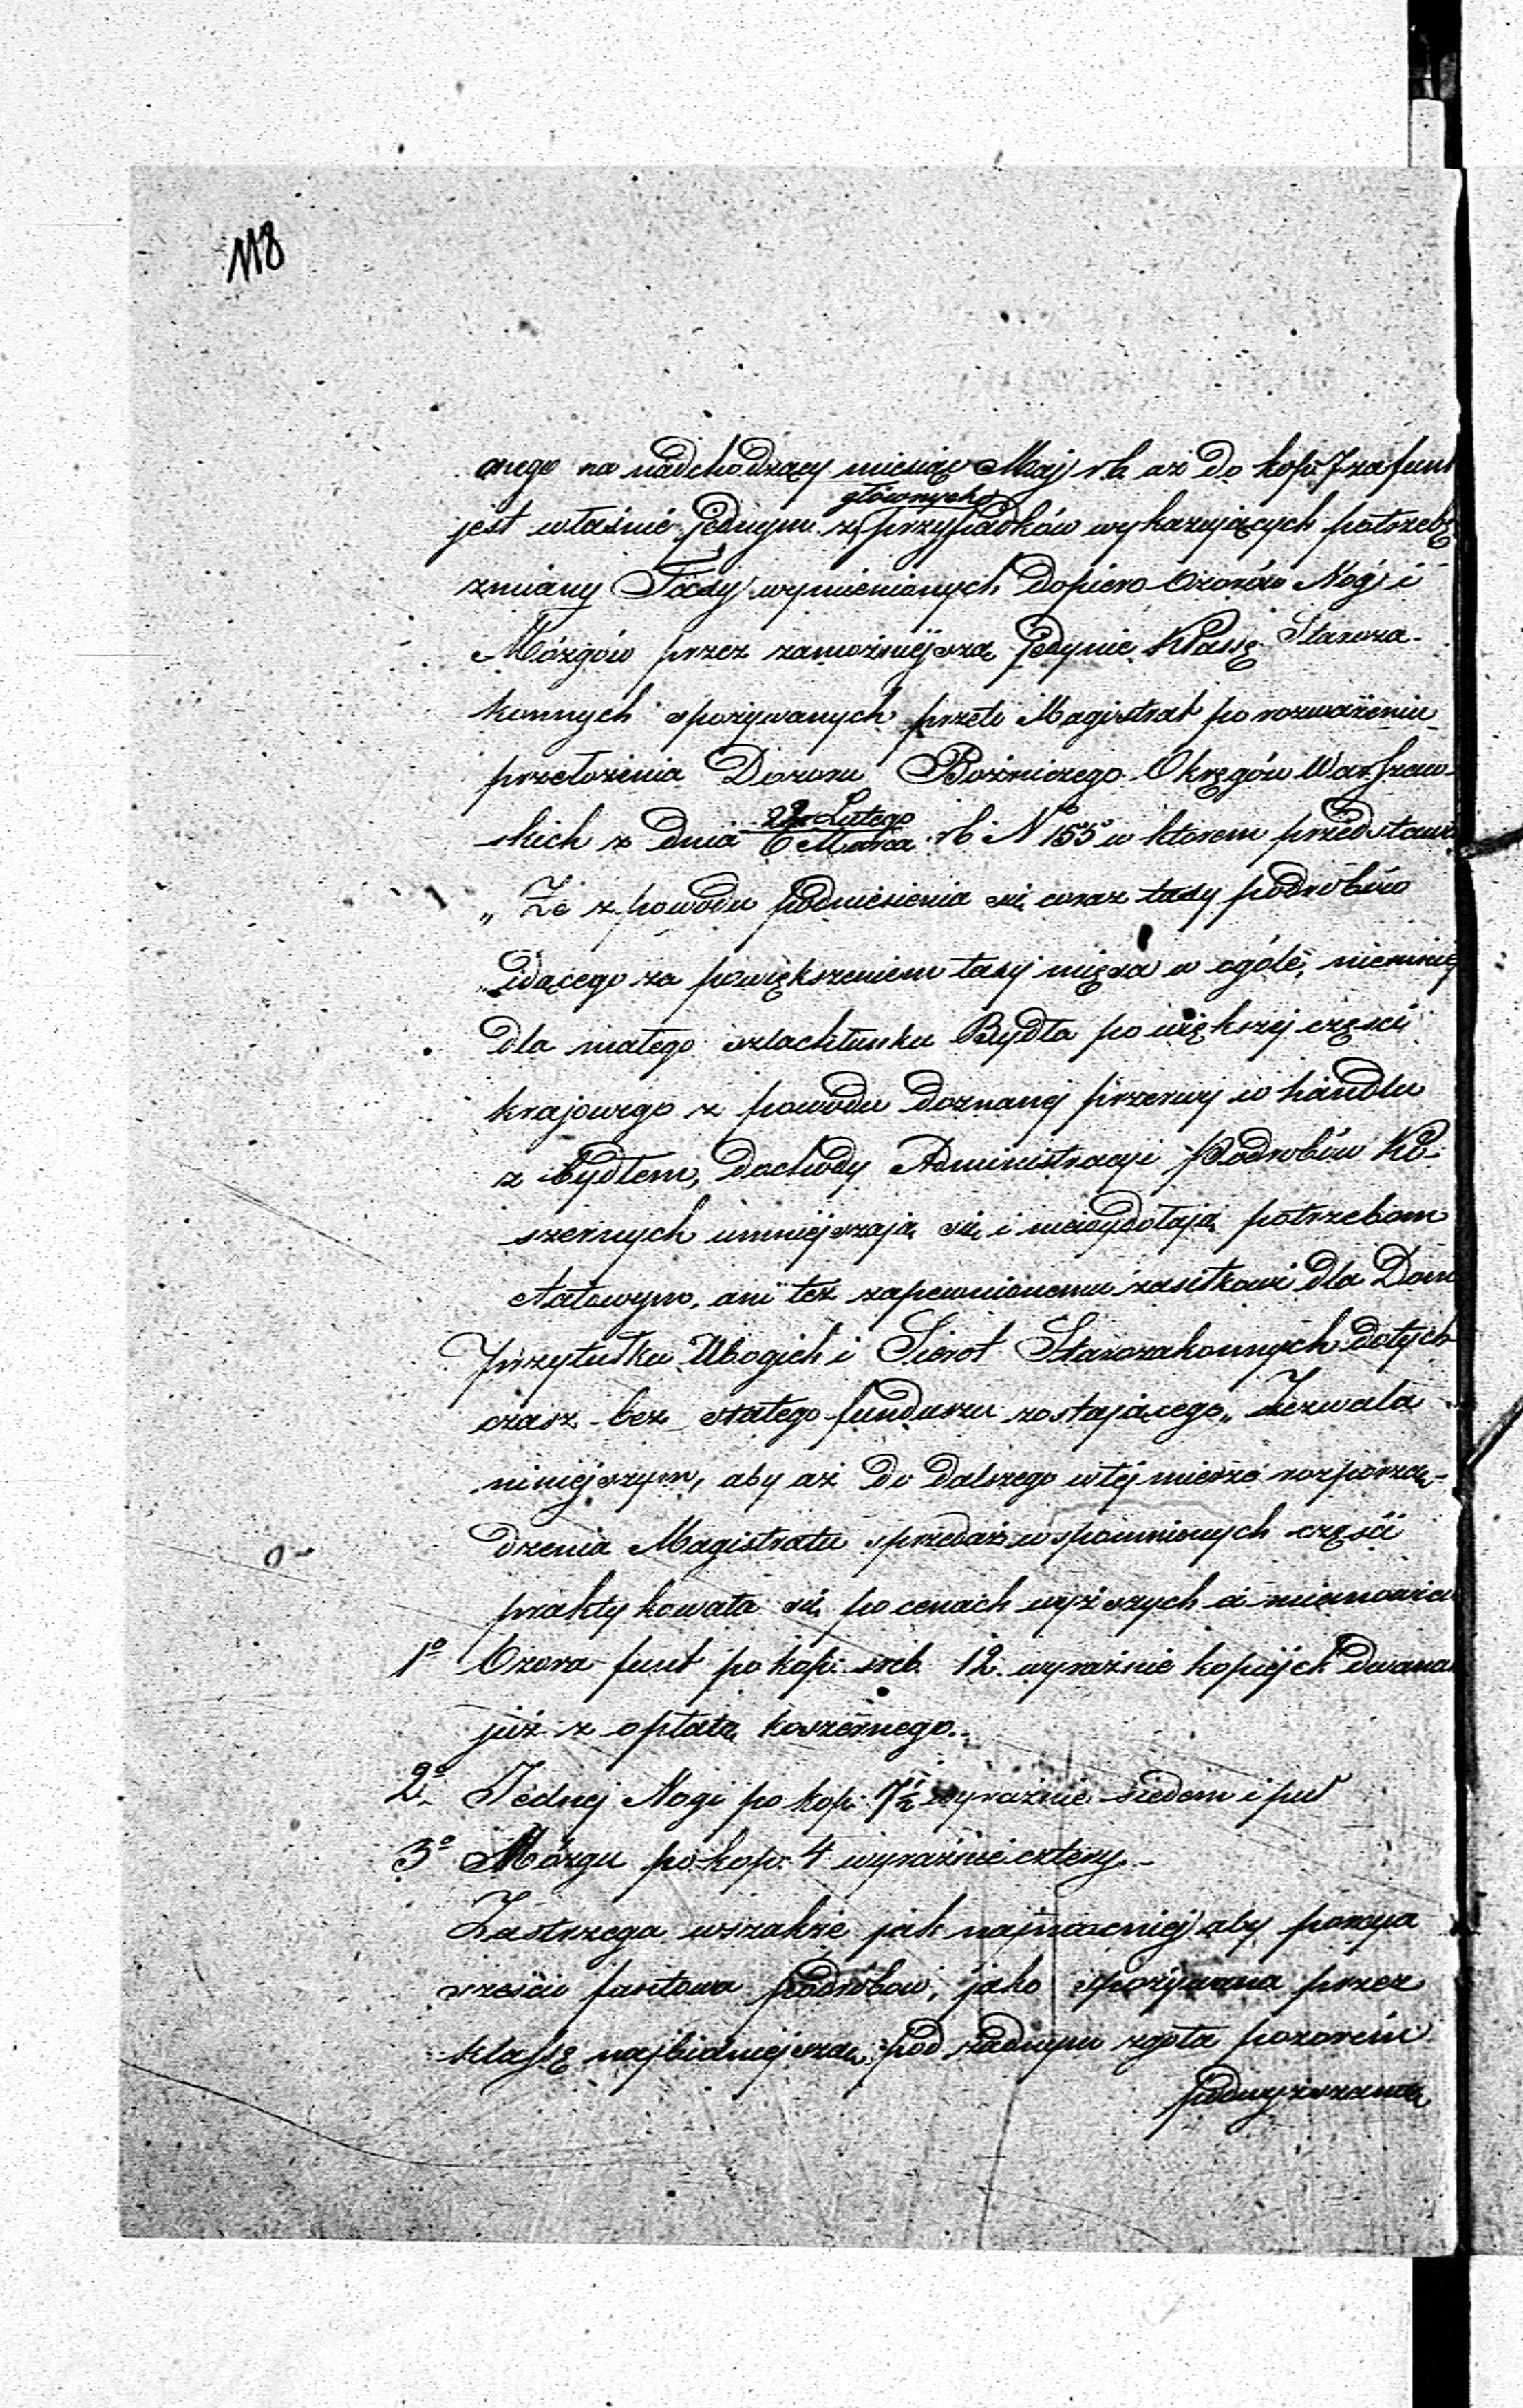 118
onego na nadchodzący miesiąc Maj r.b. aż do kop. 7 za funt
głównych
jest właśnie jednym z przypadków wykazujących potrzebę
zmiany Taxy wymienionych dopiero Ozorów Nóg i
Mózgów przez zamożniejszą jedynie Klassę Staroza-
konnych spożywanych przeto Magistrat po rozważeniu
przełożenia Dozoru Bożniczego Okręgów Warszaw-
22 Lutego
skich z dnia 6 Marca rb No 155 w ktorem przedstawia
„ Że z powodu podniesienia się coraz taxy podrobów
„idącego za powiększeniem taxy mięsa w ogóle, niemniej
dla małego szlachtunku Bydła po większej części
krajowego z powodu doznanej przerwy w handlu
z bydłem, dochody Administracyi Podrobów Ko-
szernych umniejszają się i niewydołają potrzebom
etatowym, ani też zapewnionemu zasiłkowi dla Domu
Przytułku Ubogich i Sierot Starozakonnych dotych
czasz bez stałego funduszu zostającego„ Zezwala
niniejszym, aby aż do dalszego w tej mierze rozporzą-
dzenia Magistratu sprzedaż wspomnionych części
praktykowała się po cenach wyższych a mianowicie
1o Ozora funt po kop: sreb. 12. wyraźnie kopiejek dwana
już z opłatą koszernego.
2o Jednej Nogi po kop: 7½ wyraźnie siedem i puł
3o Mózgu po kop. 4 wyraźnie cztery -
Zastrzega wszakże jak najmocniej aby porcya
sześcio funtowa podrobów, jako spożywana przez
klassę najbiedniejszą, pod żadnym zgoła pozorem
podwyższaną
0 -